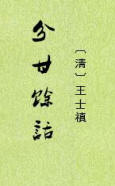 分甘餘話
〔清〕王士禛